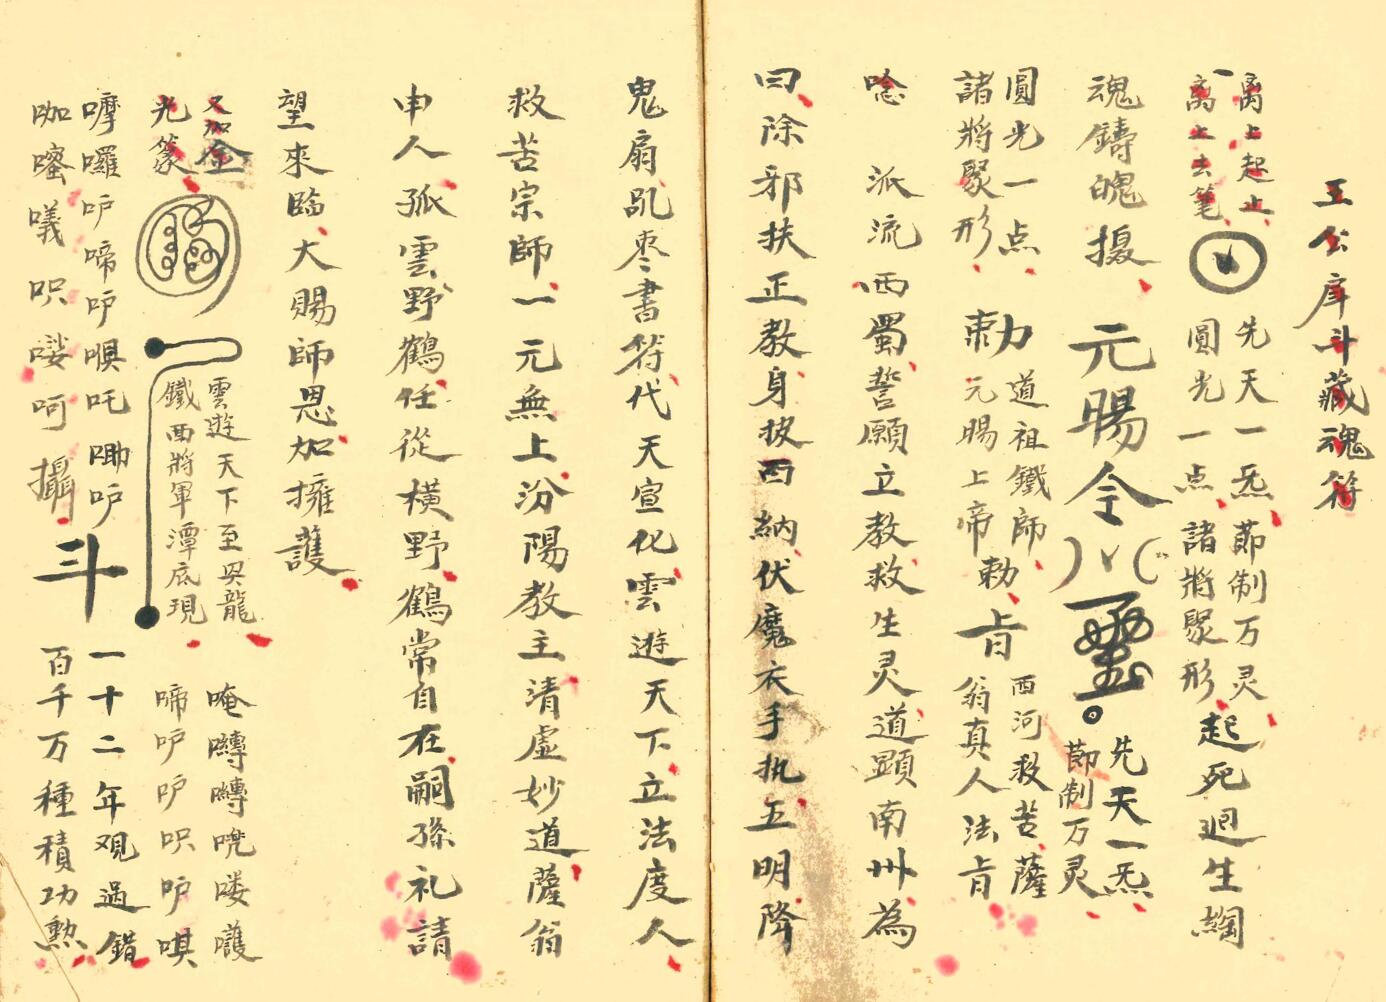 王公庫斗藏魂符
离上起止
离上去筆
先天一炁節制万灵
圓光一点諸將聚形
起死迴生綱
魂鑄魄摄
元賜令
先天一炁
節制万灵
圓光一点
諸將聚形
勅
道祖鐵師
元賜上帝
勅旨
西河救苦薩
翁真人法旨
唸
派流西蜀誓願立教救生灵道顕南州為
曰除邪扶正教身披西納伏魔衣手执五明降
鬼扇乩枣書符代天宣化雲遊天下立法度人
救苦宗師一元無上汾陽教主清虚妙道薩翁
申人孤雲野鶴任從橫野鶴常自在嗣孫礼請
望來臨大賜師恩加擁護
又加金
光篆
雲遊天下至閃龍
鐵西將軍潭底現
唵囀囀㖡喽嚄
啼咛咛呮咛唭
嚤囉咛啼咛嗔吒啣咛
咖嚂嚱呮嘙呵攝
斗
一十二年观過錯
百千万種積功勲